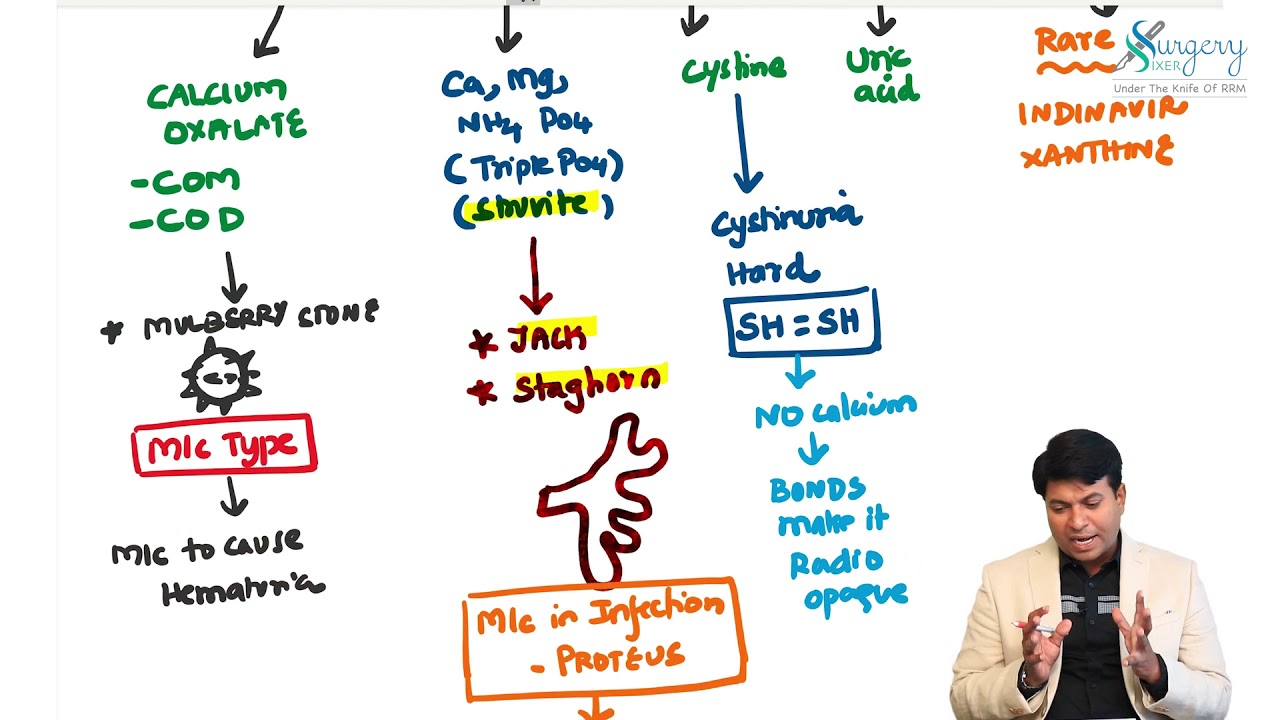 CALCIUM
OXALATE
- COM
- COD
* MULBERRY STONE
M/c Type
M/c to cause
Hematuria
Ca, Mg,
NH4 PO4
(Triple PO4)
(Struvite)
* JACK
* Staghorn
M/c in Infection
- PROTEUS
Cystine
Cystinuria
Hard
SH = SH
NO calcium
BONDS
make it
Radio
opaque
Uric
acid
Rare
INDINAVIR
XANTHINE
Surgery
SIXER
Under The Knife Of RRM